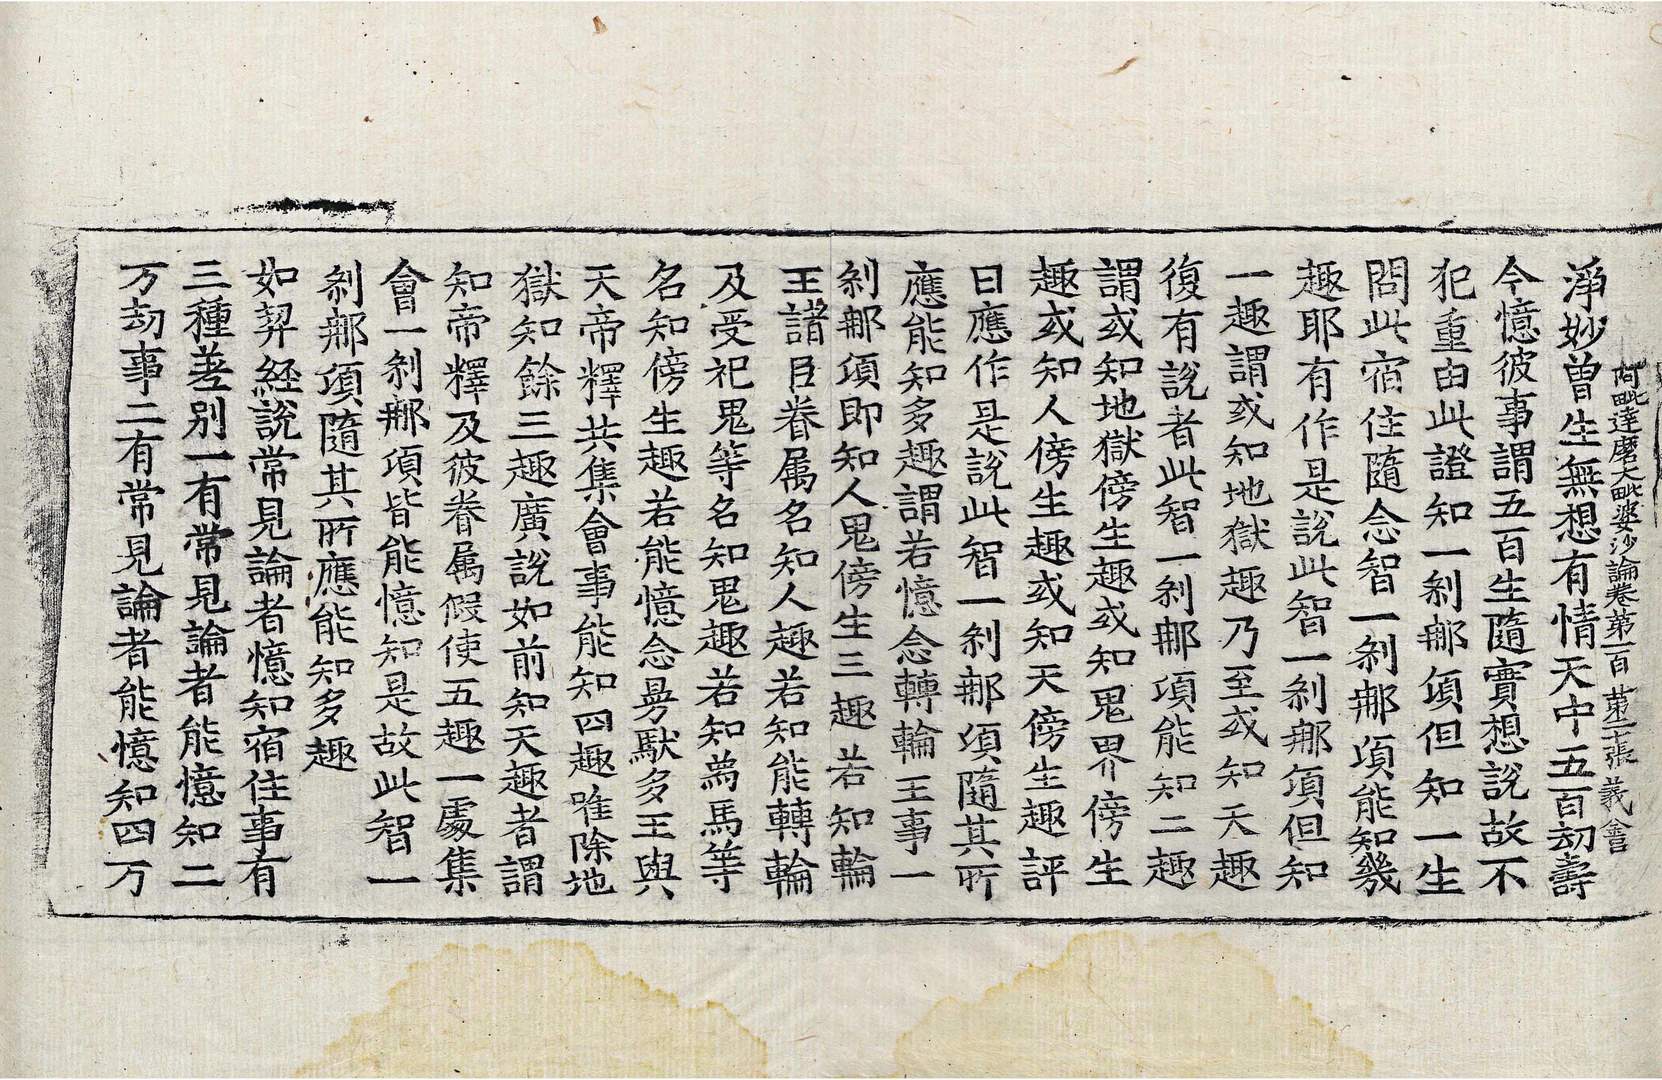 阿毗達磨大毗婆沙論卷第一百 第二十張 義 會
淨妙曾生無想有情天中五百劫壽
今憶彼事謂五百生隨實想說故不
犯重由此證知一刹那頃但知一生
問此宿住隨念智一刹那頃能知幾
趣耶有作是說此智一刹那頃但知
一趣謂或知地獄趣乃至或知天趣
復有說者此智一刹那頃能知二趣
謂或知地獄傍生趣或知鬼界傍生
趣或知人傍生趣或知天傍生趣評
曰應作是說此智一刹那頃隨其所
應能知多趣謂若憶念轉輪王事一
刹那頃即知人鬼傍生三趣若知輪
王諸臣眷属名知人趣若知能轉輪
及受祀鬼等名知鬼趣若知為馬等
名知傍生趣若能憶念曼馱多王與
天帝釋共集會事能知四趣唯除地
獄知餘三趣廣說如前知天趣者謂
知帝釋及彼眷属假使五趣一處集
會一刹那頃皆能憶知是故此智一
刹那頃隨其所應能知多趣
如契經說常見論者憶知宿住事有
三種差别一有常見論者能憶知二
万劫事二有常見論者能憶知四万